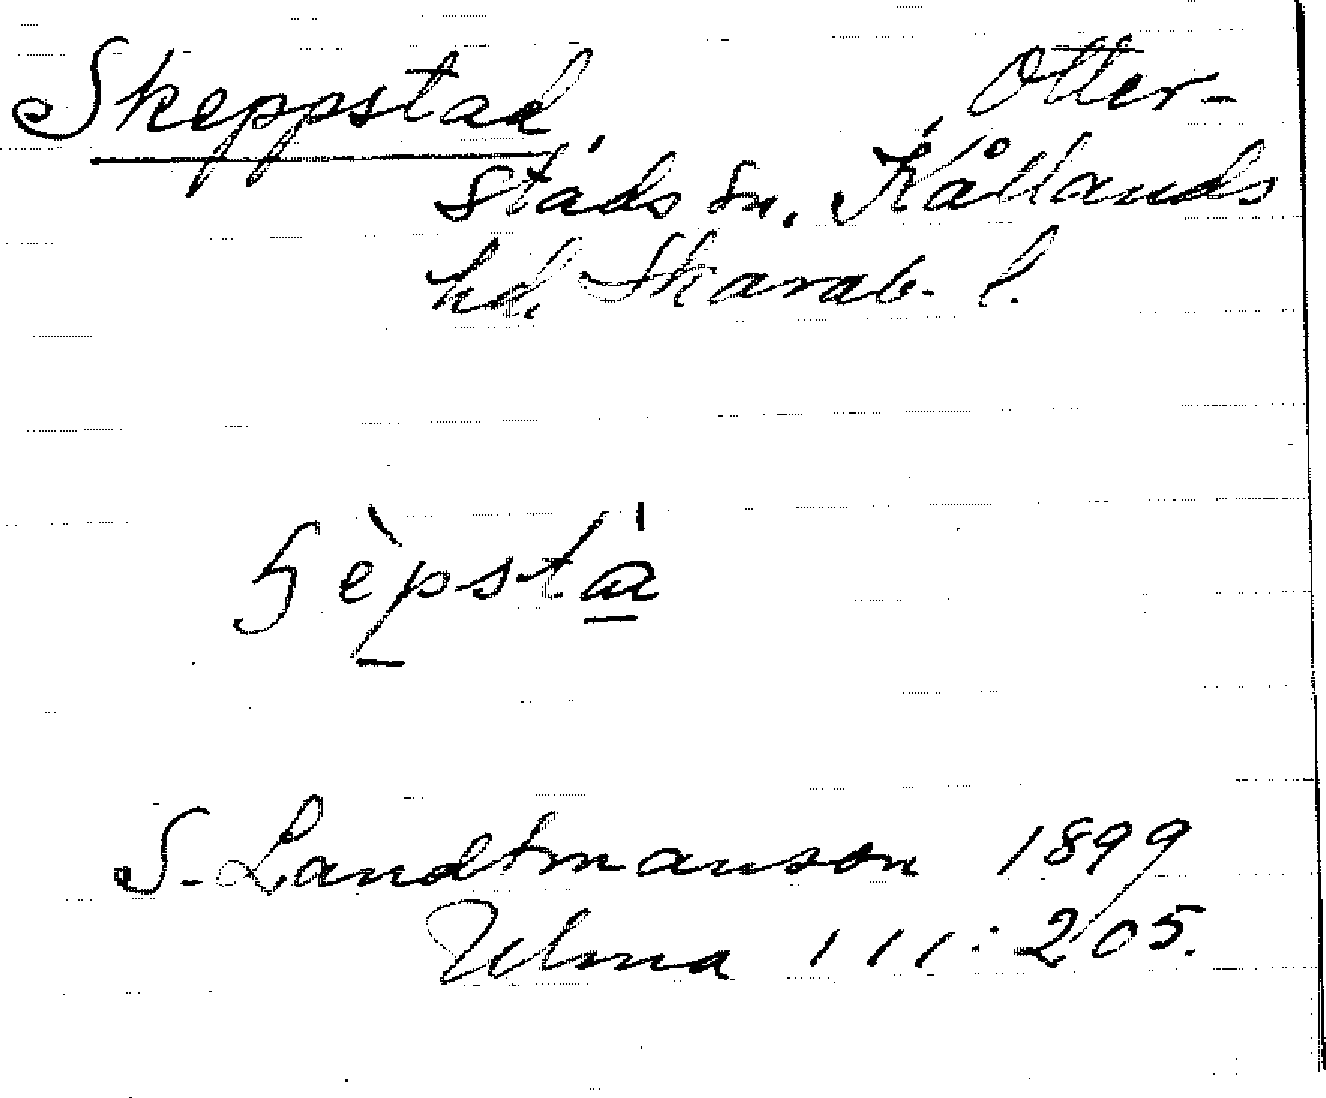 Skeppstad Otter-
stads sn. Kållands
hd. Skarab. l.
ɧèpstá
S. Landtmanson 1899
Ulma 111:205.